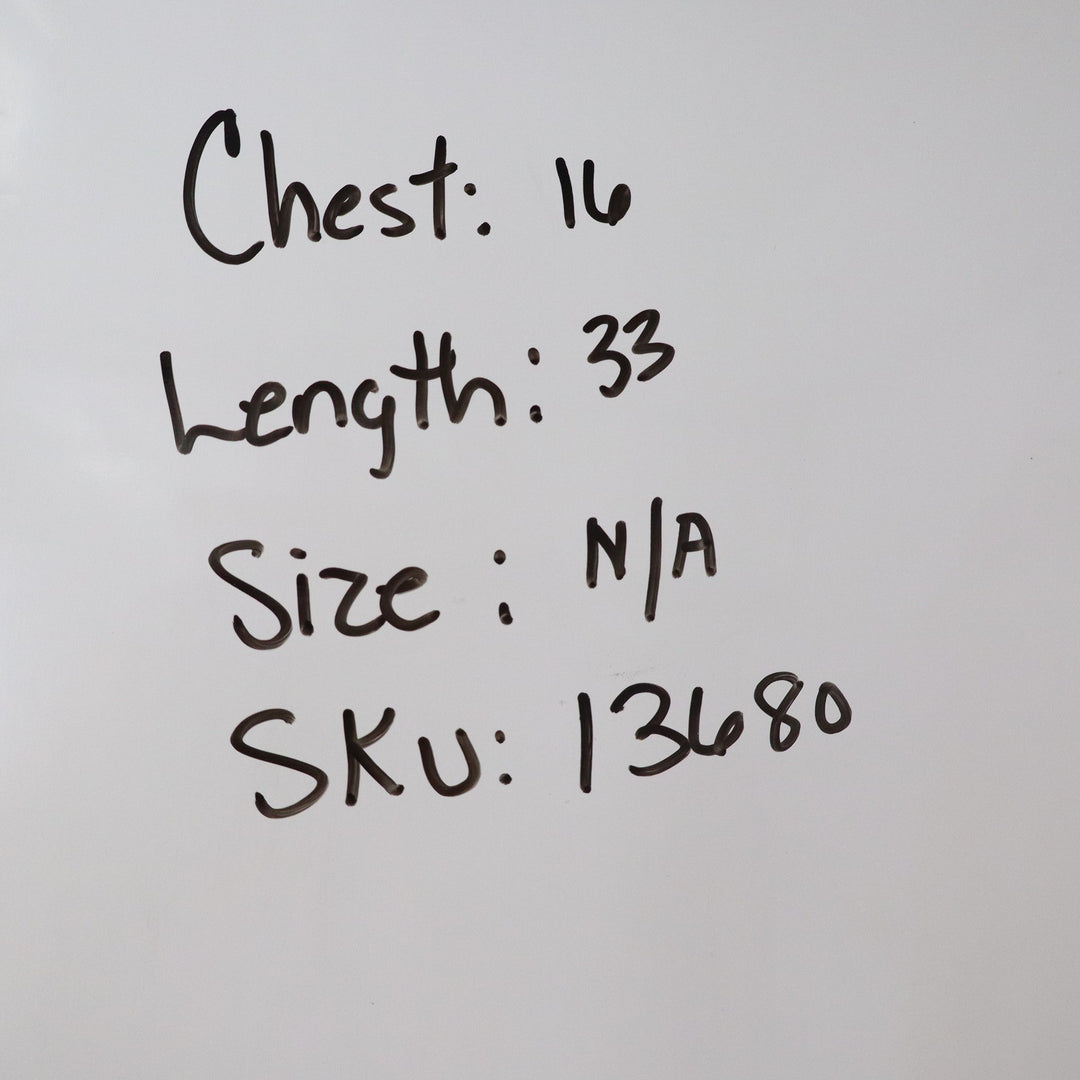 Chest: 16
Length: 33
Size: N/A
SKU: 13680